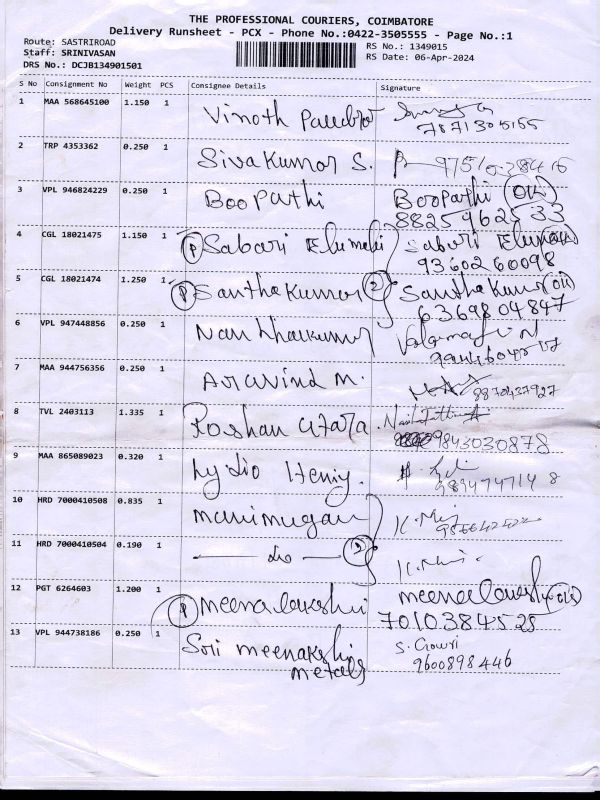 THE PROFESSIONAL COURIERS, COIMBATORE
Delivery Runsheet - PCX - Phone No.:0422-3505555 - Page No.:1
Route: SASTRIROAD
Staff: SRINIVASAN
DRS No.: DCJB134901501
RS No.: 1349015
RS Date: 06-Apr-2024
S No Consignment No Weight PCS Consignee Details Signature
1 MAA 568645100 1.150 1 Vinoth
7871305155
2 TRP 4353362 0.250 1 Sivakumar S.
3 VPL 946824229 0.250 1 BooPathi BooPathi (OK)
8825962533
4 CGL 18021475 1.150 1 (P) Sabari Elumalai Sabari
9360260098
5 CGL 18021474 1.250 1 (P) Santhakumar (2) Santhakumar (OK)
6369804847
6 VPL 947448856 0.250 1 Nandhakumar
7 MAA 944756356 0.250 1 Aravind M.
8870437927
8 TVL 2403113 1.335 1 Roshan
9843030878
9 MAA 865089023 0.320 1 Lydia
9894747148
10 HRD 7000410508 0.835 1 manimugan
11 HRD 7000410504 0.190 1 — do — (2)
12 PGT 6264603 1.200 1 (P) meenalakshi meenalakshi (OK)
7010384525
13 VPL 944738186 0.250 1 Sri meenakshi S. Gowri
metals 9600898446